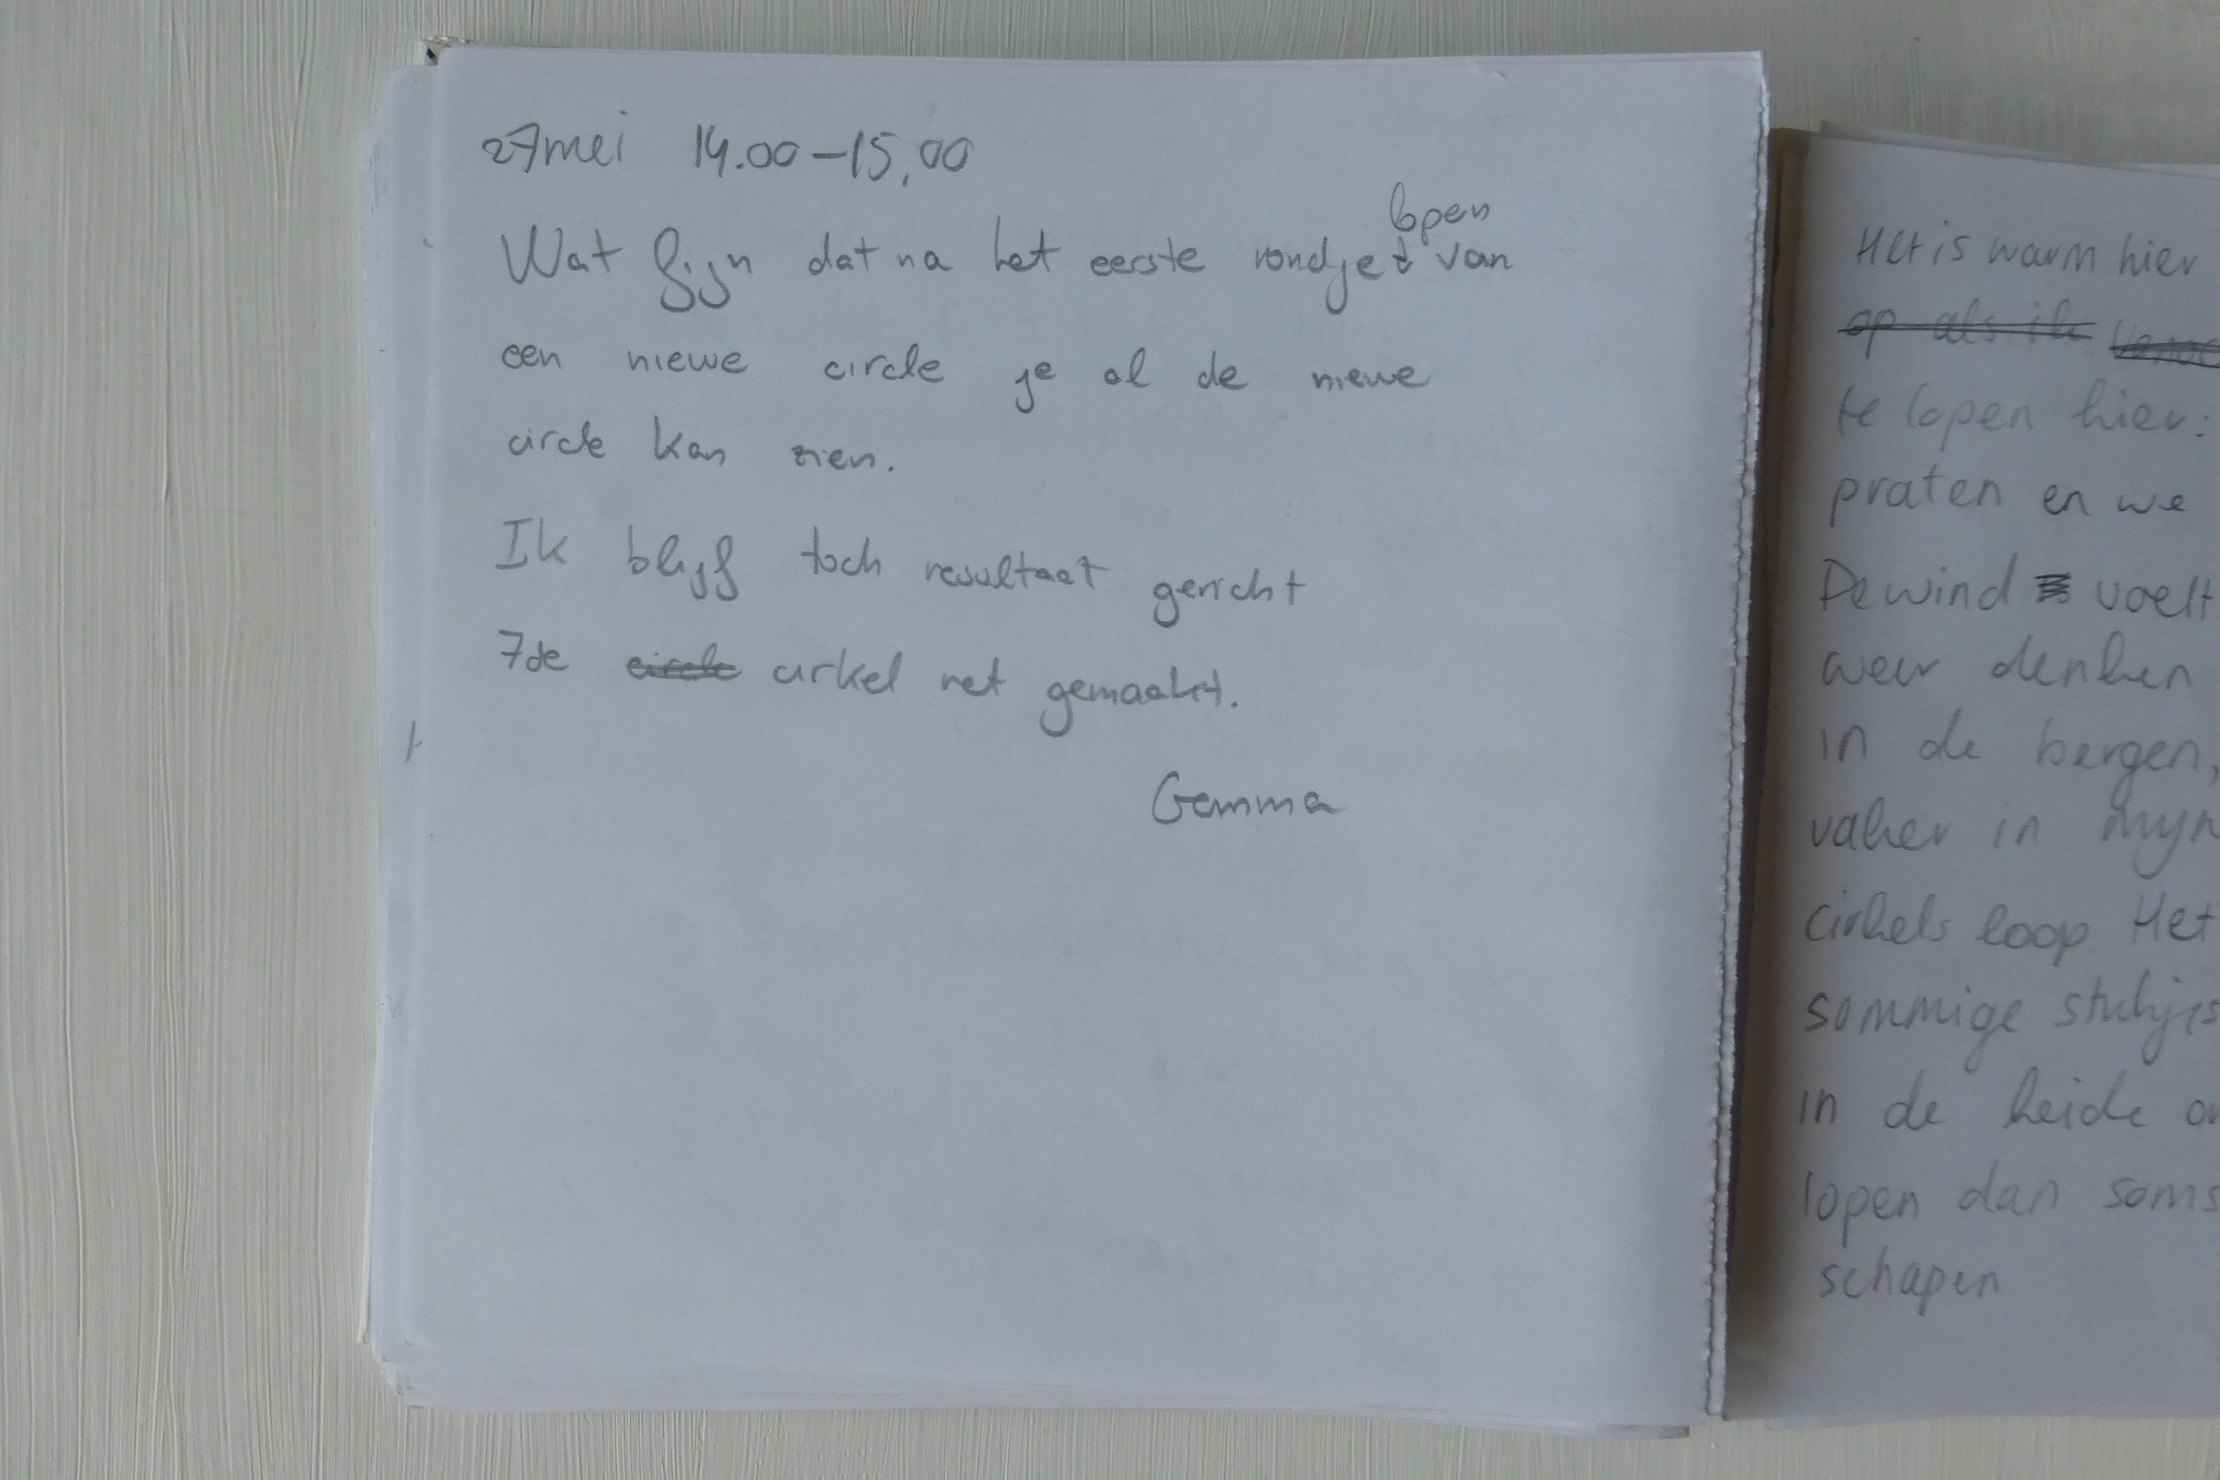 27mei 14.00-15,00
lopen
Wat fijn dat na het eerste rondje van
een niewe circle je al de niewe
circle kan zien.
Ik blijf toch resultaat gericht
7de circle cirkel net gemaakt.
Gemma
Het is warm hier
op als ik
te lopen hier:
praten en we
De wind voelt
weer denken
in de bergen,
vaker in mijn
cirkels loop. Het
sommige stukjes
in de heide
lopen dan soms
schapen